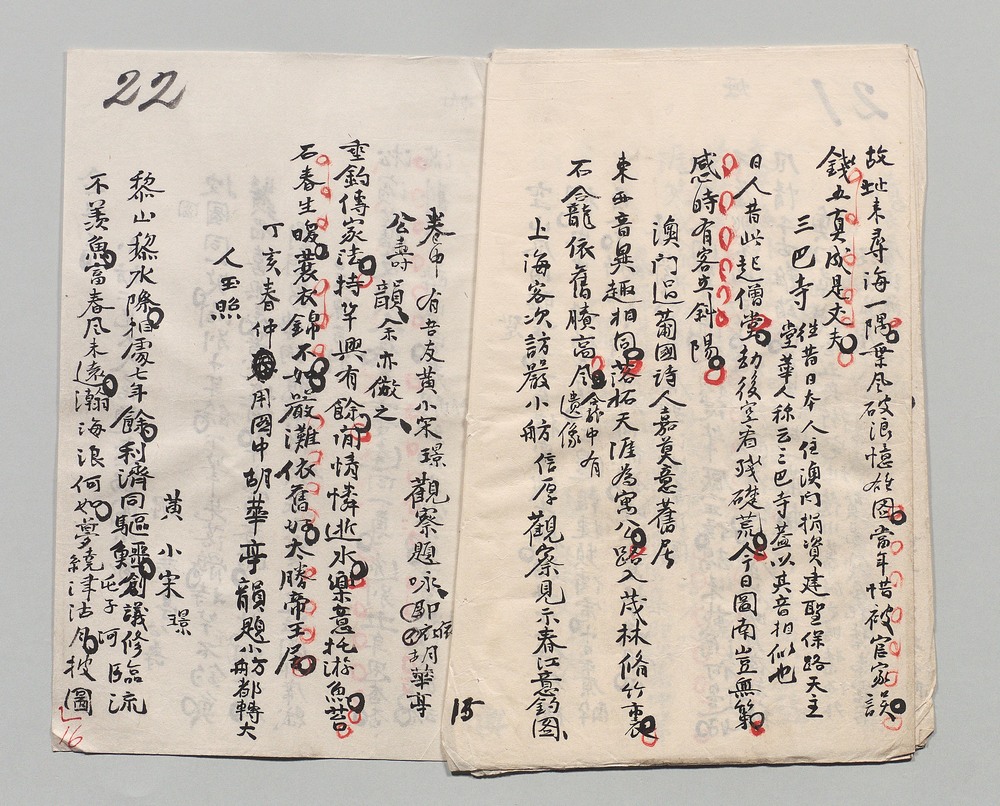 故址来尋海一隅乗风破浪憶雄图當年惜被官家誤
錢五真成是丈夫
三巴寺 徃昔日本人住澳门捐資建聖保路天主
堂華人称云三巴寺蓋以其音相似也
日人昔此起僧堂劫後空看殘礎荒今日圖南豈無策
感時有客立斜陽
澳门過葡國詩人嘉莫意舊居
東西音異趣相同落柘天涯為寓公路入茂林脩竹裏
石龕依舊賸高风龕中有遺像
上海客次訪嚴小舫信厚觀察見示春江意釣图
15
22
卷中有吾友黄小宋璟觀察題咏
公壽韻余亦倣之
垂釣傳家法特竿興有餘閒情憐逝水樂意托游魚苔
石春生暖蓑衣錦不如嚴灘依舊好大勝帝王居
丁亥春仲用圖中胡華亭韻題小舫都轉大
人玉照
黄小宋璟
黎山黎水降相處七年餘利濟同驅鱷創議修臨流
不羡魚富春风未遠瀚海浪何如夢繞津沽月披圖
16